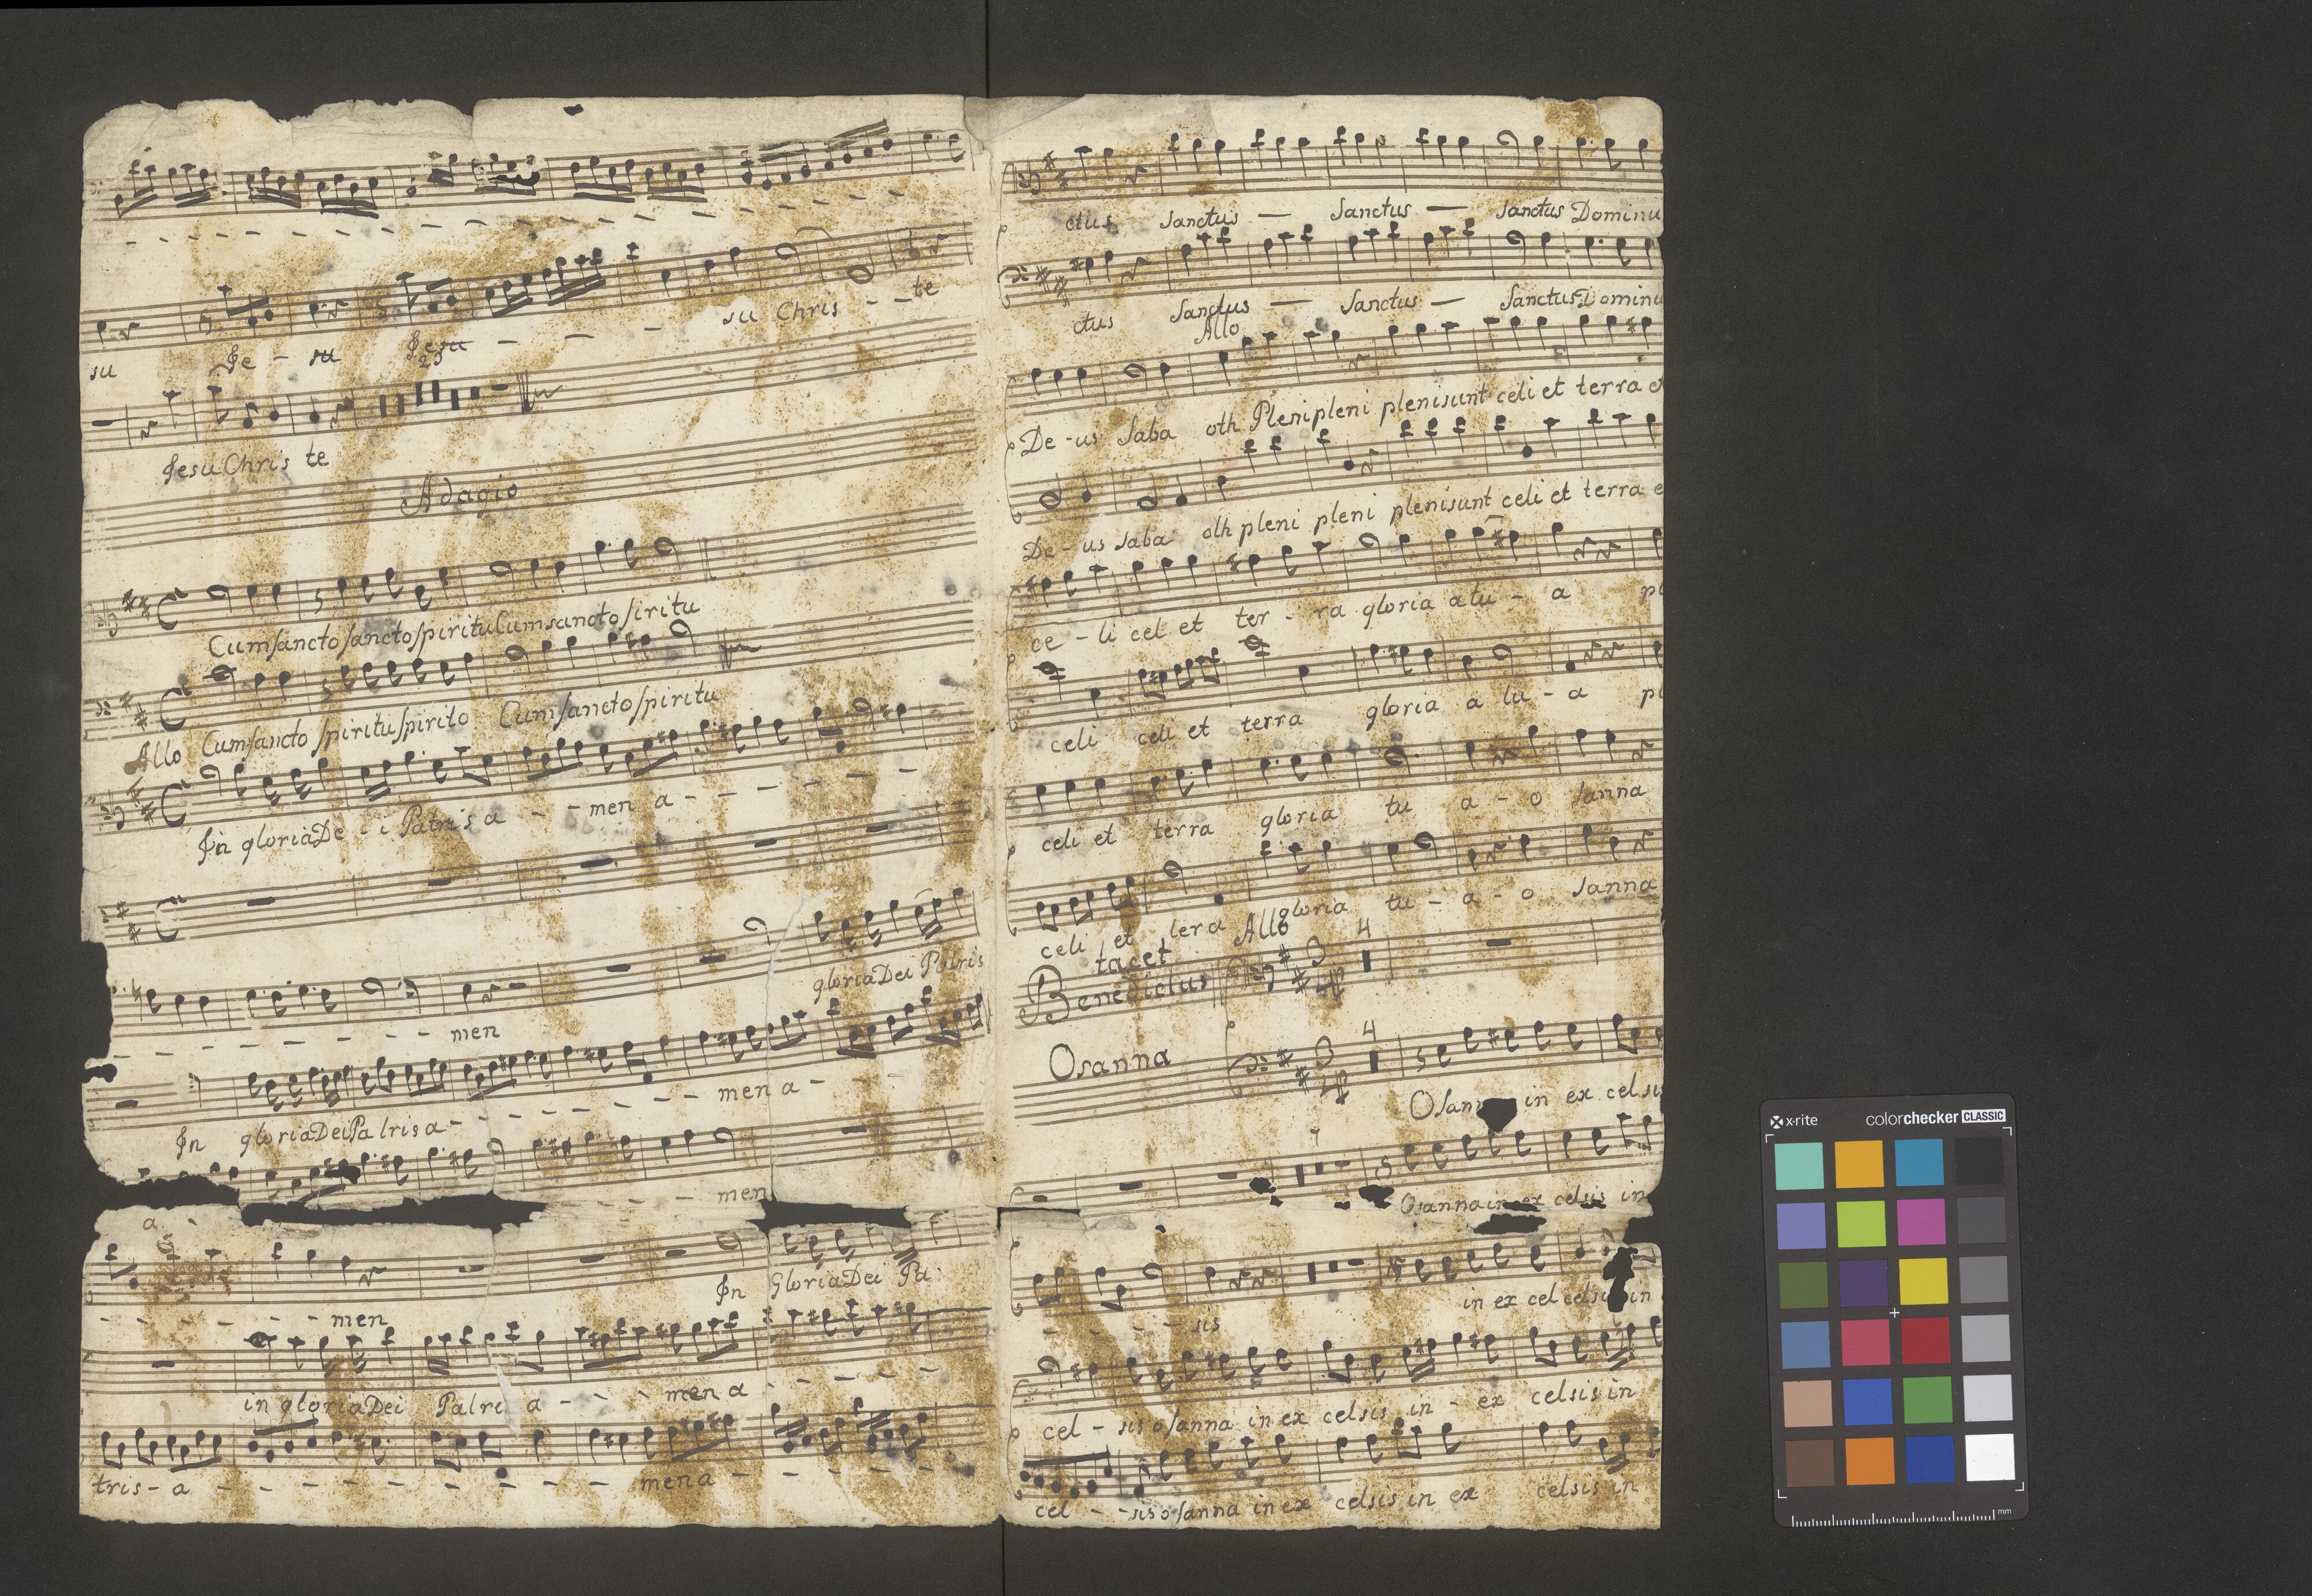 su Je - su Jesu - - - su Chris - - te
23
Jesu Chris te
Adagio
Cum sancto sancto spiritu Cum sancto siritu
Cum sancto spiritu spirito Cum sancto spiritu
Allo
In gloria De - i Patris a - - men a - - - - -
gloria Dei Patris
- - - - - - - men
In gloria Dei Patris a - - - - - - - men a -
- - - men
a -
In Gloria Dei Pa
- - - - - - men
in gloria Dei Patri a - - - men a - - - -
tris - a - - - - - - - - men a - - - - -
ctus Sanctus — Sanctus — Sanctus Dominu
ctus Sanctus — Sanctus — Sanctus Dominu
Allo
De - us Saba oth Pleni pleni pleni sunt celi et terra
De - us Saba oth pleni pleni pleni sunt celi et terra e
ce - li cel et ter - ra gloria a tu - a pl
celi celi et terra gloria a tu - a pl
celi et terra gloria tu a - o Sanna
celi et tera gloria tu - a - o Sanna
Allo
Benedictus tacet
3 4
4
Osanna
3 4
4
Osanna in ex celsis
Osanna in ex celsis in
in ex cel celsis in
- - - - sis
cel - sis osanna in ex celsis in - ex celsis in
cel - - sis osanna in ex celsis in ex celsis in
x·rite colorchecker CLASSIC
mm